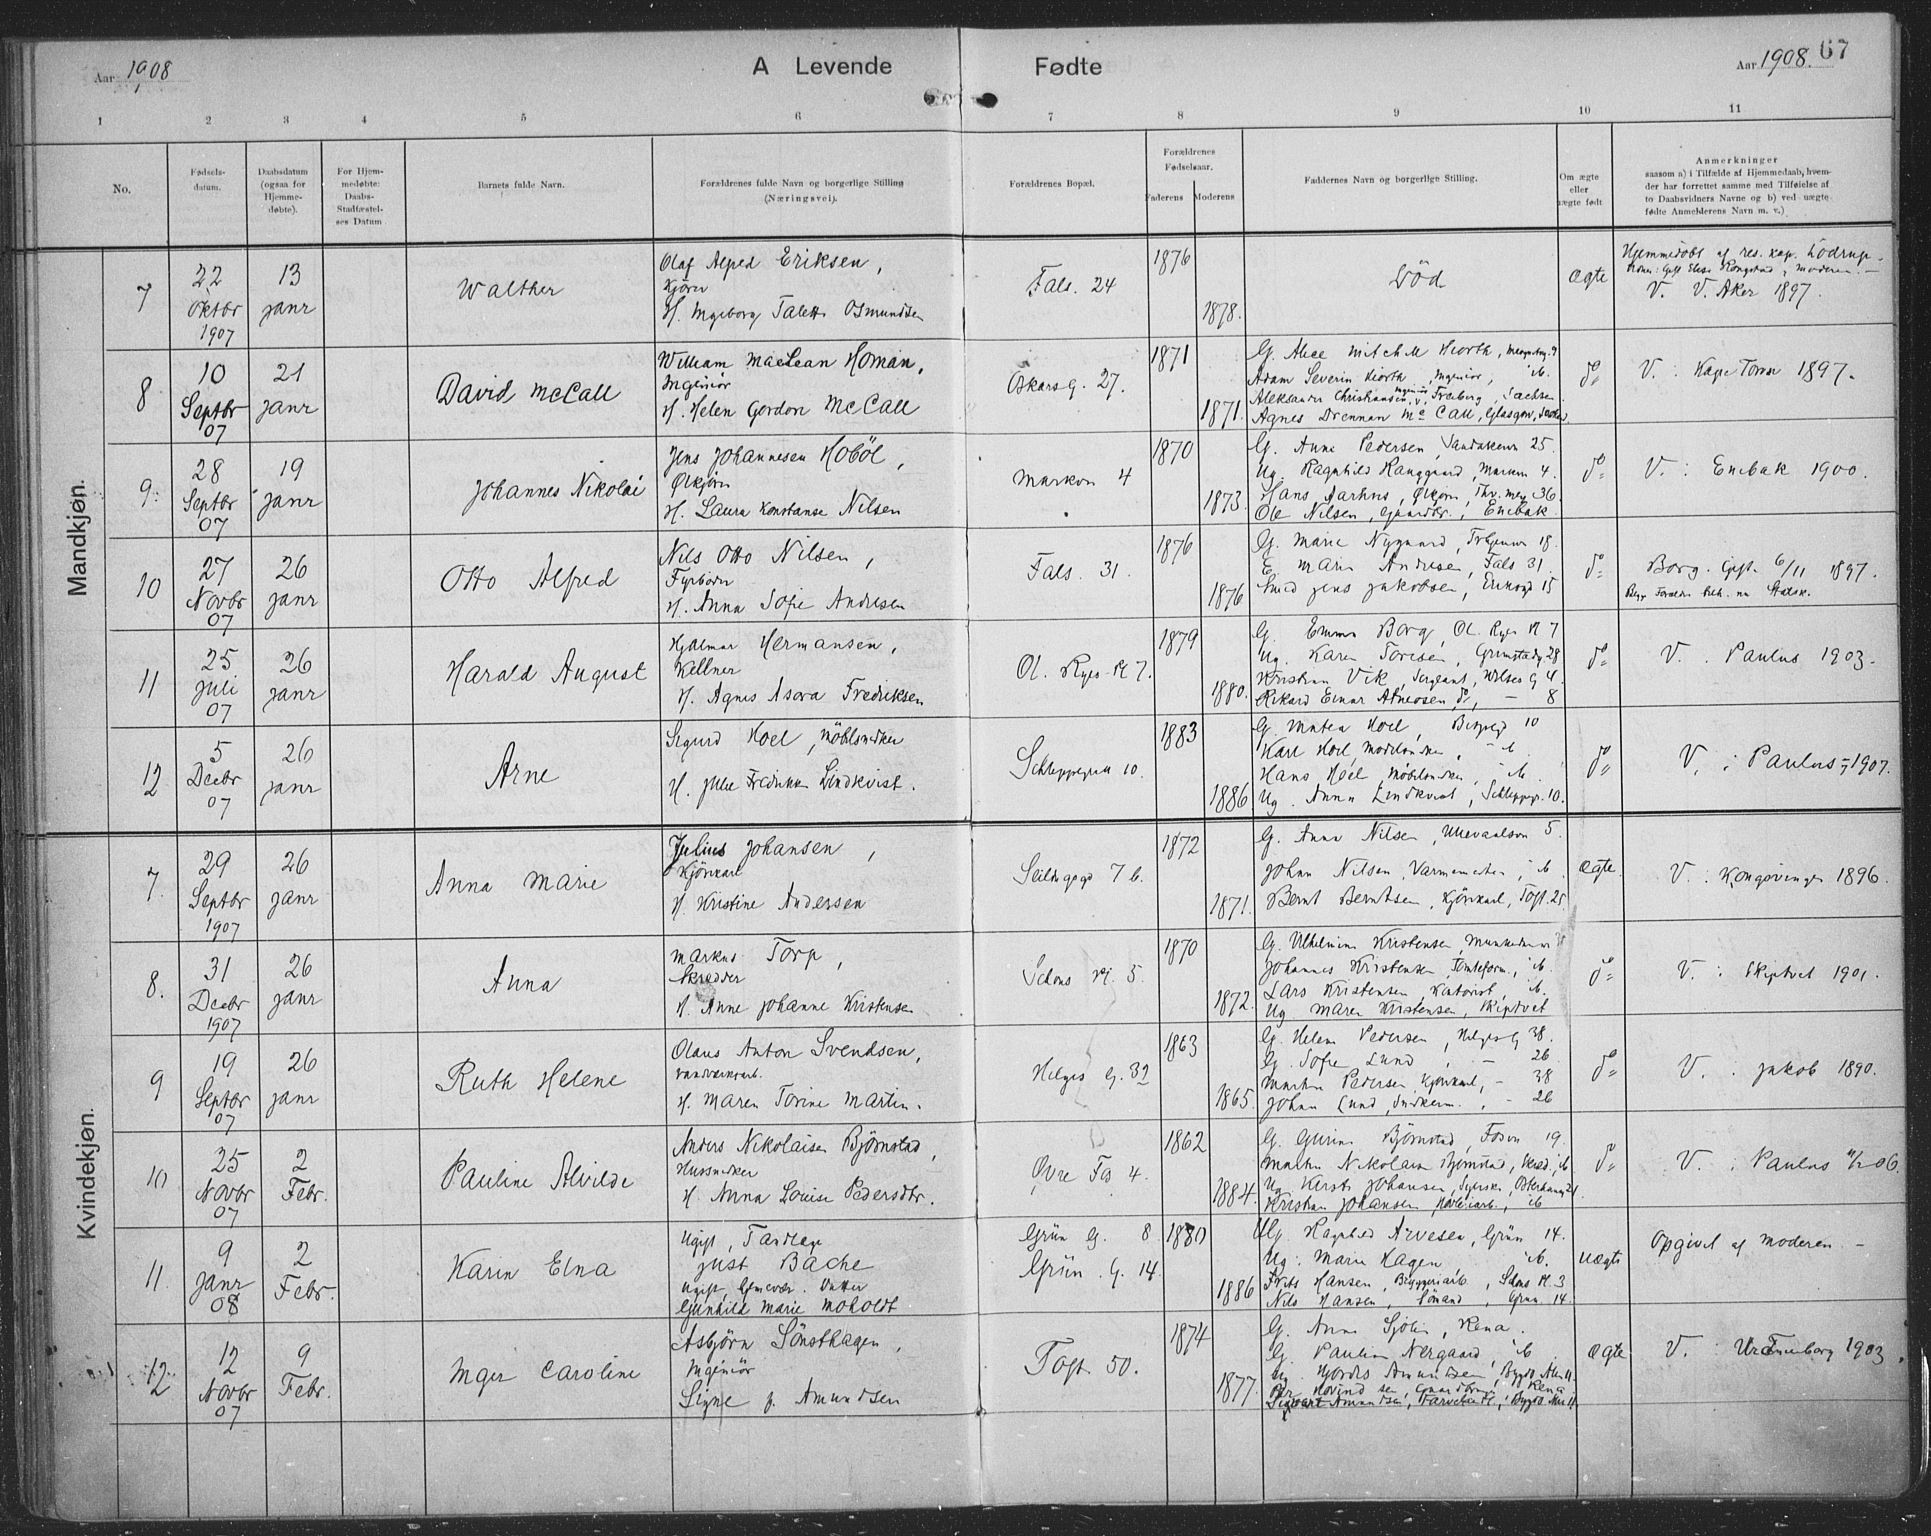 Aar 1908
A Levende Fødte
Aar 1908. 67
1 2 3 4 5 6 7 8 9 10 11
No.
Fødsels-
datum.
Daabsdatum
(ogsaa for
Hjemme-
døbte).
For Hjem-
medøbte:
Daabs-
Stadfæstel-
ses Datum
Barnets fulde Navn.
Forældrenes fulde Navn og borgerlige Stilling
(Næringsvei).
Forældrenes Bopæl.
Forældrenes
Fødselsaar.
Faderens Moderens
Faddernes Navn og borgerlige Stilling.
Om ægte
eller
uægte født
Anmerkninger
saasom a) i Tilfælde af Hjemmedaab, hvem-
der har forrettet samme med Tilføielse af
to Daabsvidners Navne og b) ved uægte
fødte Anmelderens Navn m. v.)
Mandkjøn.
7
22 Oktbr 1907
13 janr
Walther
Olaf Alfred Eriksen,
Kjører
H. Ingeborg Talette Osmundsen
Fals. 24
1876
1878.
Død
ægte
Hjemmedøbt af res. kap. Lødrup
V. V. Aker 1897.
8
10 Septbr 07
21 janr
David McCall
William MacLean Homan,
Ingeniør
H. Helen Gordon McCall
Oskars G. 27.
1871
1871.
G. Alice Mitchell Hiorth,
Adam Severin Hiorth, Ingeniør, ib.
Aleksander Christiansen, Ingeniør, Freiberg, Sachsen
Agnes Drennan McCall, Glasgow,
do
V. : 1897.
9.
28 Septbr 07
19 janr
Johannes Nikolai
Jens Johannesen Hobøl,
Ølkjører
H. Laura Konstanse Nilsen
Markvn 4
1870
1873.
G. Anne Pedersen, Sandakervn 25.
Ug. Ragnhild Marken 4.
Hans Aarhus, Ølkjører, Thv. Mey. 36
Ole Nilsen, Gaardbr., Enebak.
do
V. : Enebak 1900.
10
27 Novbr 07
26 janr
Otto Alfred
Nils Otto Nilsen,
Fyrbøder
H. Anna Sofie Andresen
Fals. 31.
1876
1876
G. Marie Nygaard, 18.
E. Marie Andresen, Fals 31.
Smed Jens Jakobsen, 15
do
Borg. Gift 6/11 1897.
11
25 juli 07
26 janr
Harald August
Hjalmar Hermansen,
Kellner
H. Agnes Asora Fredriksen
Ol. Ryes Pl 7.
1879
1880.
G. Emma Borg, Ol. Ryes Pl 7
Ug. Karen Toresen, Grimstadg 28
Kristian Vik, Sergeant, Wilses G 4
Rikard Einar Asmeosen, do, — 8
do
V. : Paulus 1903.
12
5 Decbr 07
26 janr
Arne
Sigurd Hoel, Møbelsnedker
H. Julie Fredrikke Lindkvist.
Schleppegrell 10.
1883
1886
G. Mutea Hoel, 10
Karl Hoel, ib.
Hans Hoel, Møbelsnedker, ib.
Ug. Anna Lindkvist, Schleppegr. 10.
do
V. : Paulus 1907.
Kvindekjøn.
7.
29 Septbr 1907
26 janr
Anna Marie
Julius Johansen,
Kjørekarl
H. Kristine Andersen
Seildugsgd 7 b.
1872
1871.
G. Anna Nilsen, Ullevaalsvn 5.
Johan Nilsen, Varmemester, ib.
Bernt Berntsen, Kjørekarl, Toft. 25
ægte
V. : Kongsvinger 1896.
8.
31 Decbr 1907
26 janr
Anna
Markus Torp,
Skrædder
H. Anne Johanne Kristensen
Schous Pl. 5.
1870
1872.
G. Vilhelmine Kristensen,
Johannes Kristensen, Tomteform., ib.
Lars Kristensen, Kontorist, ib.
Ug Maren Kristensen, Skiptvet
do
V. : Skiptvet 1901.
9
19 Septbr 07
26 janr
Ruth Helene
Olaus Anton Svendsen,
H. Maren Torine Martin.
Helges G. 32
1863
1865.
G. Helene Pedersen, Helges G 38.
G. Sofie Lund, — 26.
Martin Pedersen, Kjørekarl, — 38
Johan Lund, — 26
do
V. : Jakob 1890.
10
25 Novbr 07
2 Febr.
Pauline Alvilde
Anders Nikolaisen Bjørnstad,
Hussnedker
H. Anna Louise Pedersdtr.
Øvre Fos 4.
1862
1884.
G. Gurine Bjørnstad, Fosvn 19.
Martin Nikolaisen Bjørnstad, ib
Ug Kirsti Johansen, Syerske,
Kristian Johansen, ib
do
V. : Paulus 11/2 06.
11.
9 Janr 08
2 Febr.
Karin Elna
Ugift,
Just Bache
Ugift,
Gunhilde Marie Moholdt
Grün G. 8
Grün. G. 14.
1880
1886
Ug. Ragnhild Arvesen, Grün 14.
Ug. Marie Hagen ib.
Frits Hansen, Bryggeriarb, Schous Pl. 3
Nils Hansen, Sømand, Grün. 14.
uægte
Opgivet af Moderen —
12
12 Novbr 07
9 Febr.
Inger Caroline
Asbjørn Sönsthagen,
Ingeniør
Signe f. Amundsen
Toft. 50.
1874
1877.
G. Anne Sjølie, Rena.
G. Pauline Nergaard, ib.
Ug. Hjørdis Amundsen, Bygdø Allé 11
Per Hovindsen, Rena
Sigvart Amundsen, Farvehandl., Bygdø Allé 11.
ægte
V. Uranienborg 1903.